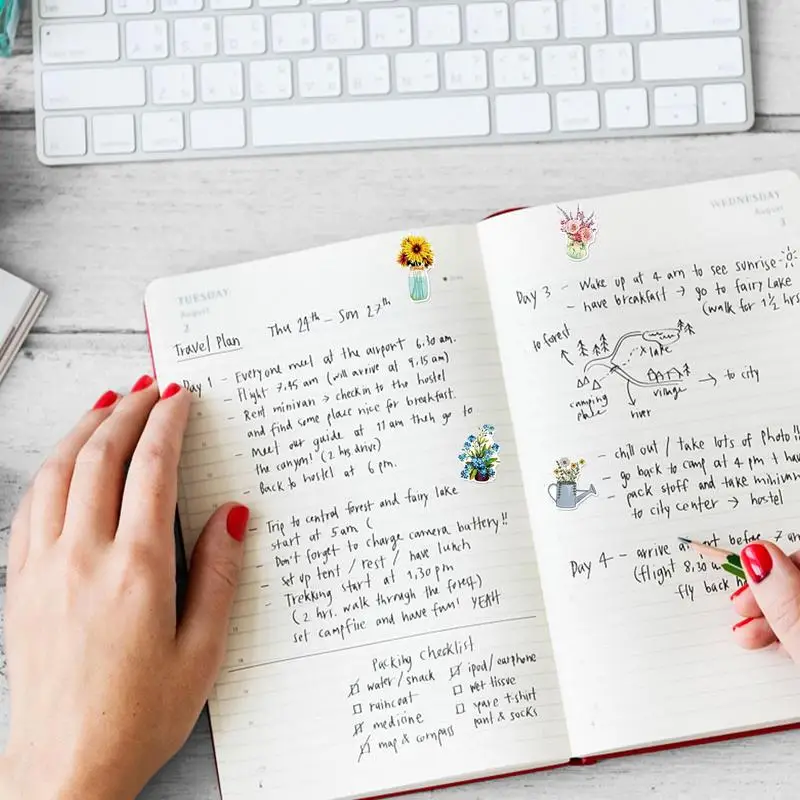 TUESDAY
August
2
Travel Plan Thu 24th – Sun 27th
Day 1 - Everyone meet at the airport 6.30 am.
- Flight 7.45 am (will arrive at 9.15 am)
- Rent minivan → check in to the hostel
and find some place nice for breakfast.
- Meet our guide at 11 am then go to
the canyon! (2 hrs drive)
- Back to hostel at 6 pm.
- Trip to central forest and fairy lake
start at 5am (
- Don't forget to charge camera buttery!!
- set up tent / rest / have lunch
- Trekking start at 1,30 pm
(2 hrs. walk through the forest)
set campfire and have fun! YEAH
Packing Checklist
water / snack
raincoat
medicine
map & compass
ipod / earphone
wet tissue
spare t-shirt
pant & socks
WEDNESDAY
August
3
Day 3 - Wake up at 4 am to see sunrise
- have breakfast → go to fairy lake
(walk for 1 1/2 hrs
to forest
lake
camping
river
village
→ to city
- chill out / take lots of photo!!
- go back to camp at 4 pm +
- pack stuff and take minivan
to city center → hostel
Day 4 - arrive before 7 am
(flight 8,30
fly back